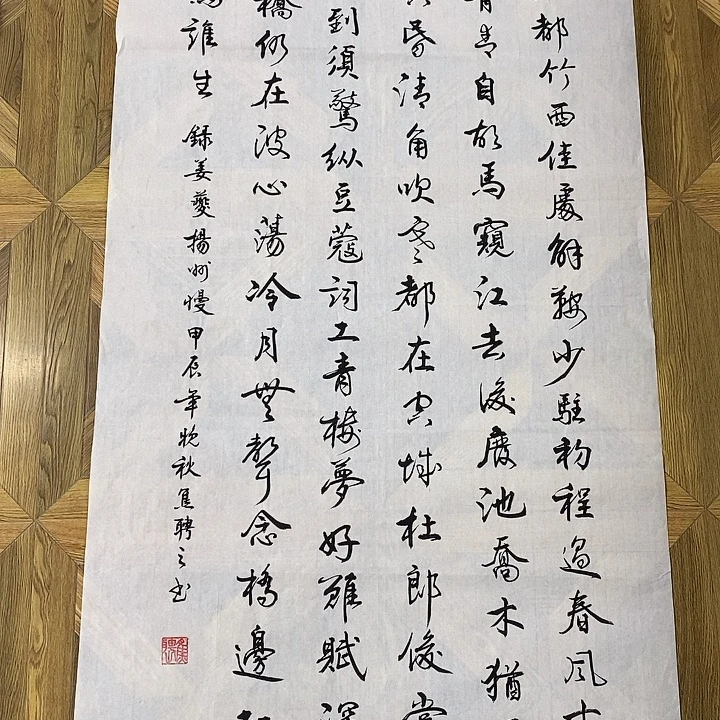 都竹西佳處解鞍少駐初程過春風十
青青自胡馬窺江去後廢池喬木猶
昏清角吹寒都在空城杜郎俊賞
到須驚縱豆蔻詞工青樓夢好難賦深
橋仍在波心蕩冷月無聲念橋邊
誰生 錄姜夔揚州慢甲辰年晚秋焦聘之書